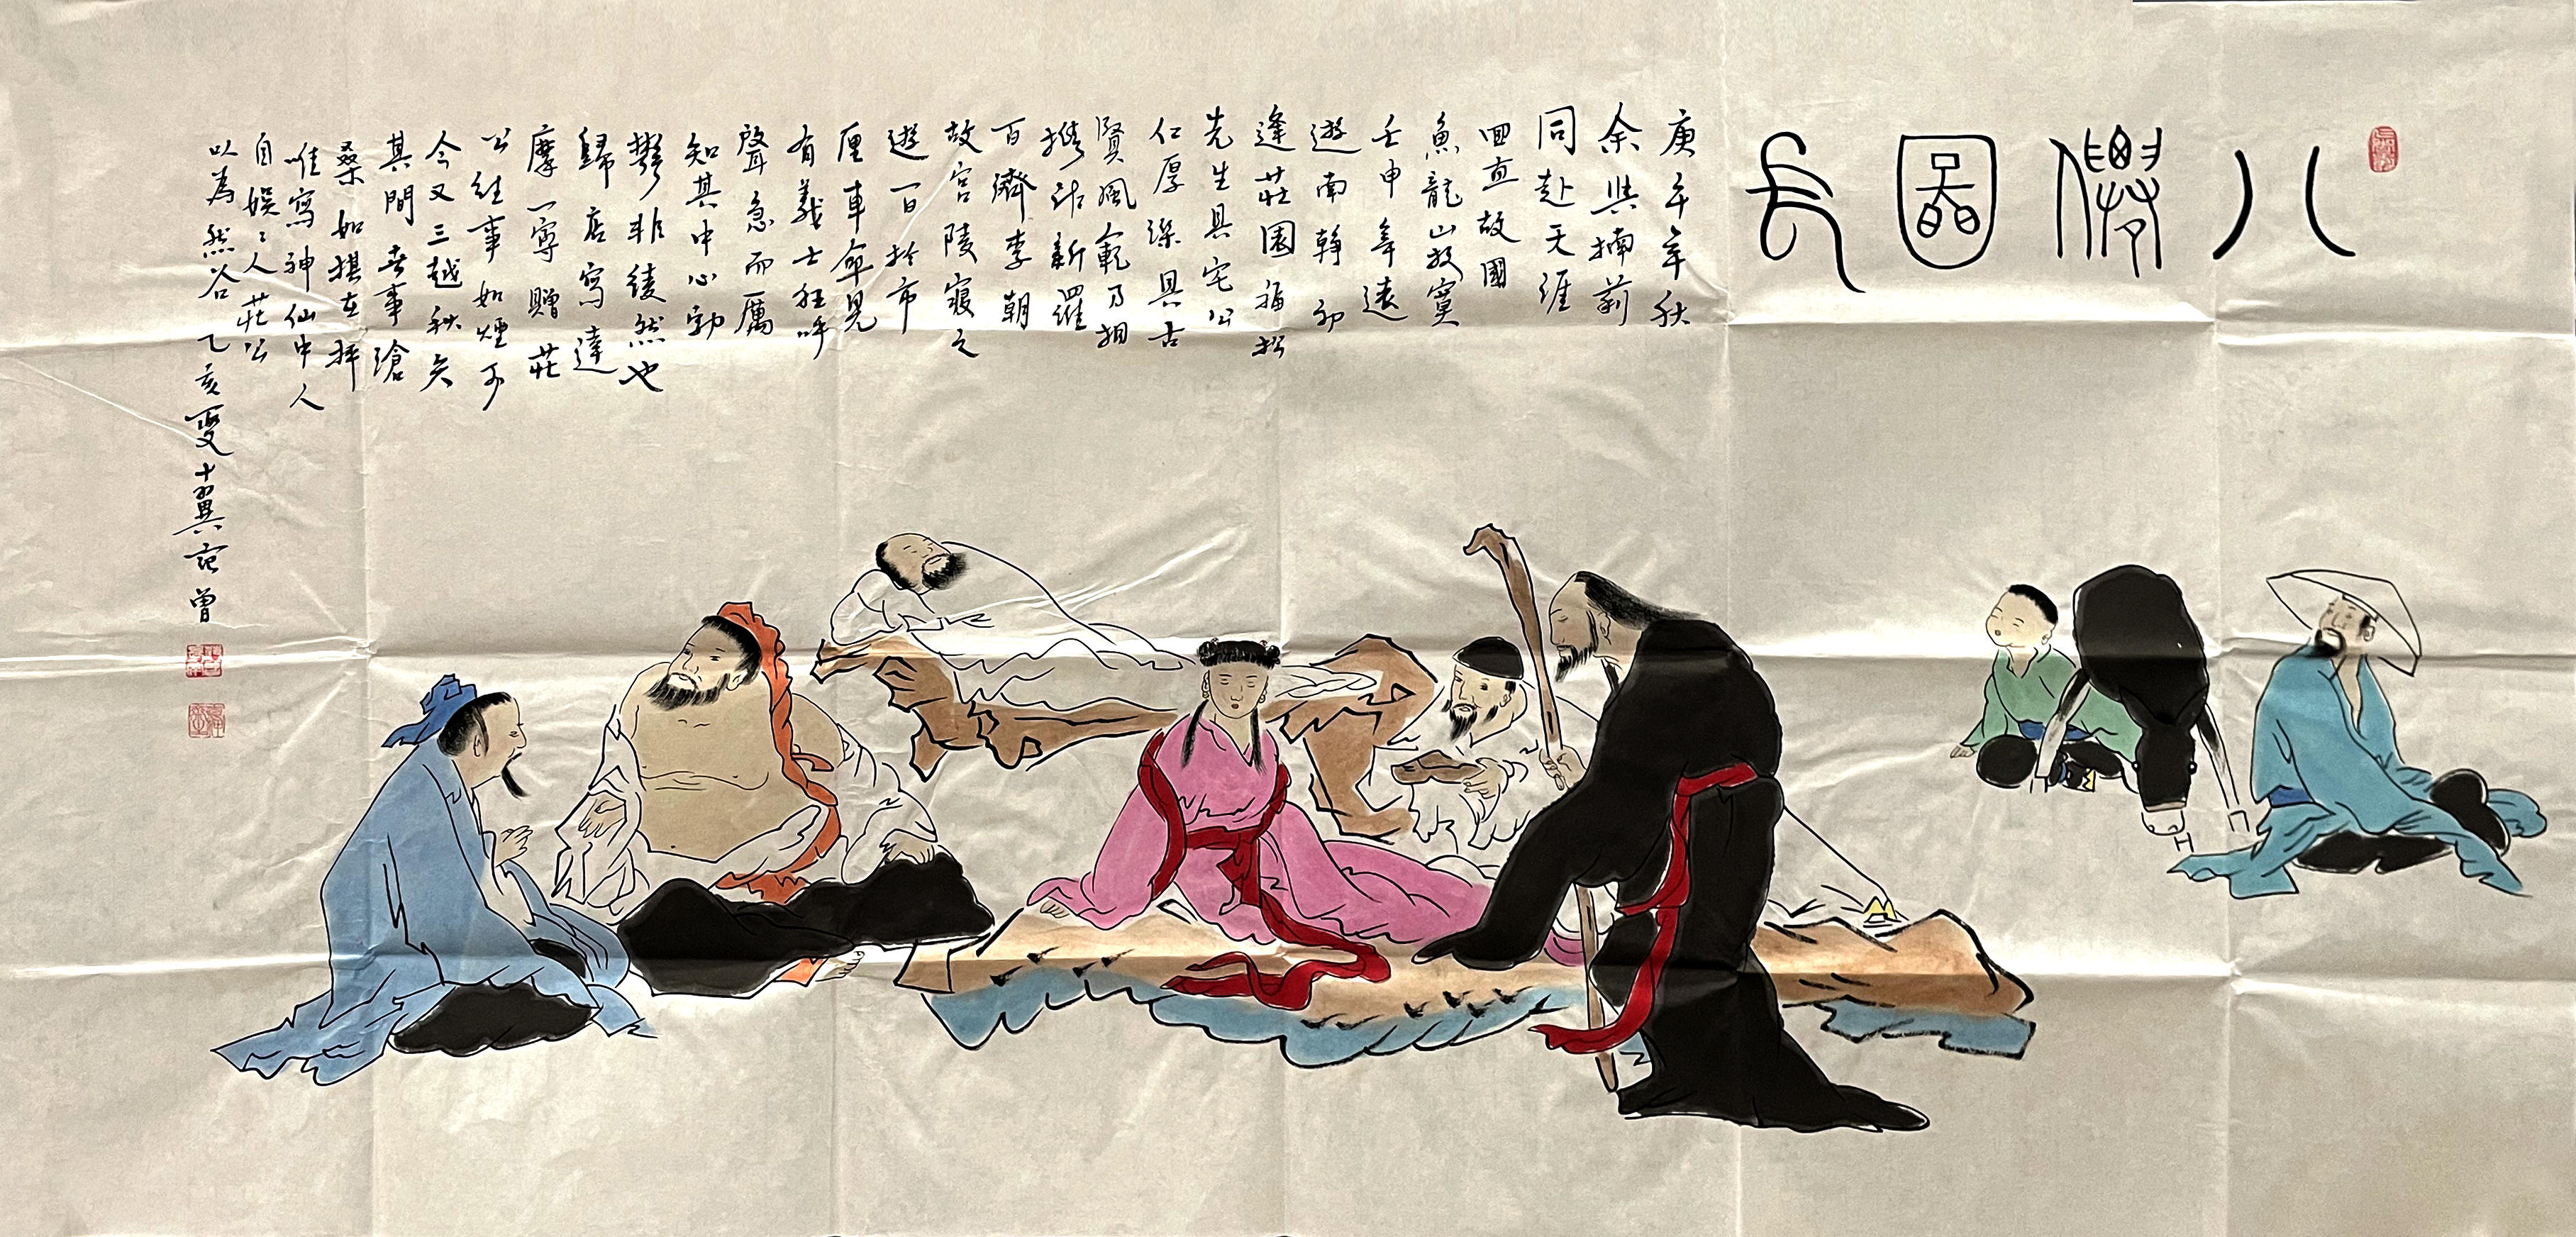 八僊圖長
庚午年秋
余與楠莉
同赴天涯
回直故國
魚龍山寂寞
壬申年遠
遊南韓初
逢莊園福松
先生具宅公
仁厚深具古
賢風範乃相
携訪新羅
百濟李朝
故宮陵寢之
遊一日於市
厘車牽見
有義士狂呼
聲急而厲
知其中心勃
鬱非徒然也
歸店寫達
摩一寧贈莊
公往事如煙雨
今又三越秋矣
其間喪事滄
桑如棋在抨
唯寫神仙中人
自娛々人莊公
以為然否乙亥夏十翼范曾